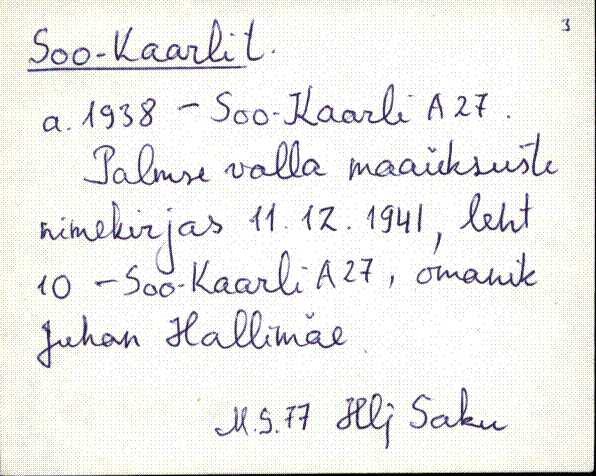 3
Soo-Kaarlit.
a. 1938 – Soo-Kaarli A 27.
Palmse valla maaüksuste
nimekirjas 11.12.1941, leht
10 – Soo-Kaarli A 27, omanik
Juhan Hallimäe.
Hlj Saku